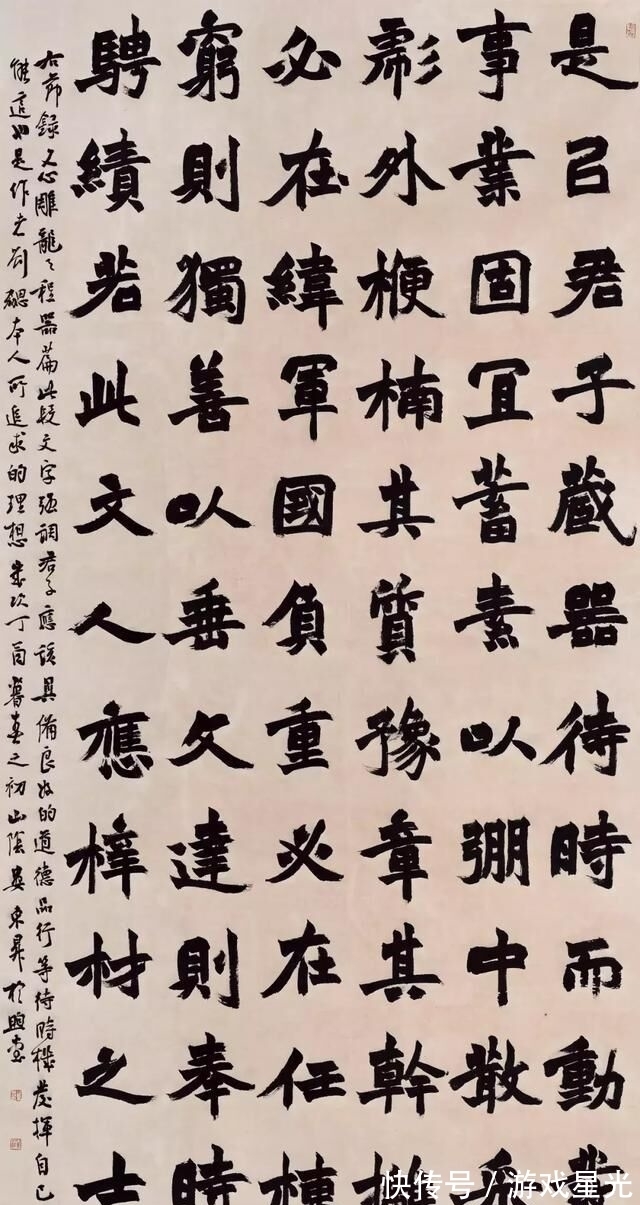 是㠯君子藏器待時而動
事業固宜蓄素以弸中散采
彪外楩楠其質豫章其幹摛
必在緯軍國負重必在任棟
窮則獨善以垂文達則奉時
騁績若此文人應梓材之士
右節錄文心雕龍之程器篇此段文字强調君子應該具備良好的道德品行等待時機發揮自己
能這也是作者劉勰本人所追求的理想歲次丁酉暮春之初山陰吳東昇於煦堂
快传号/游戏星光